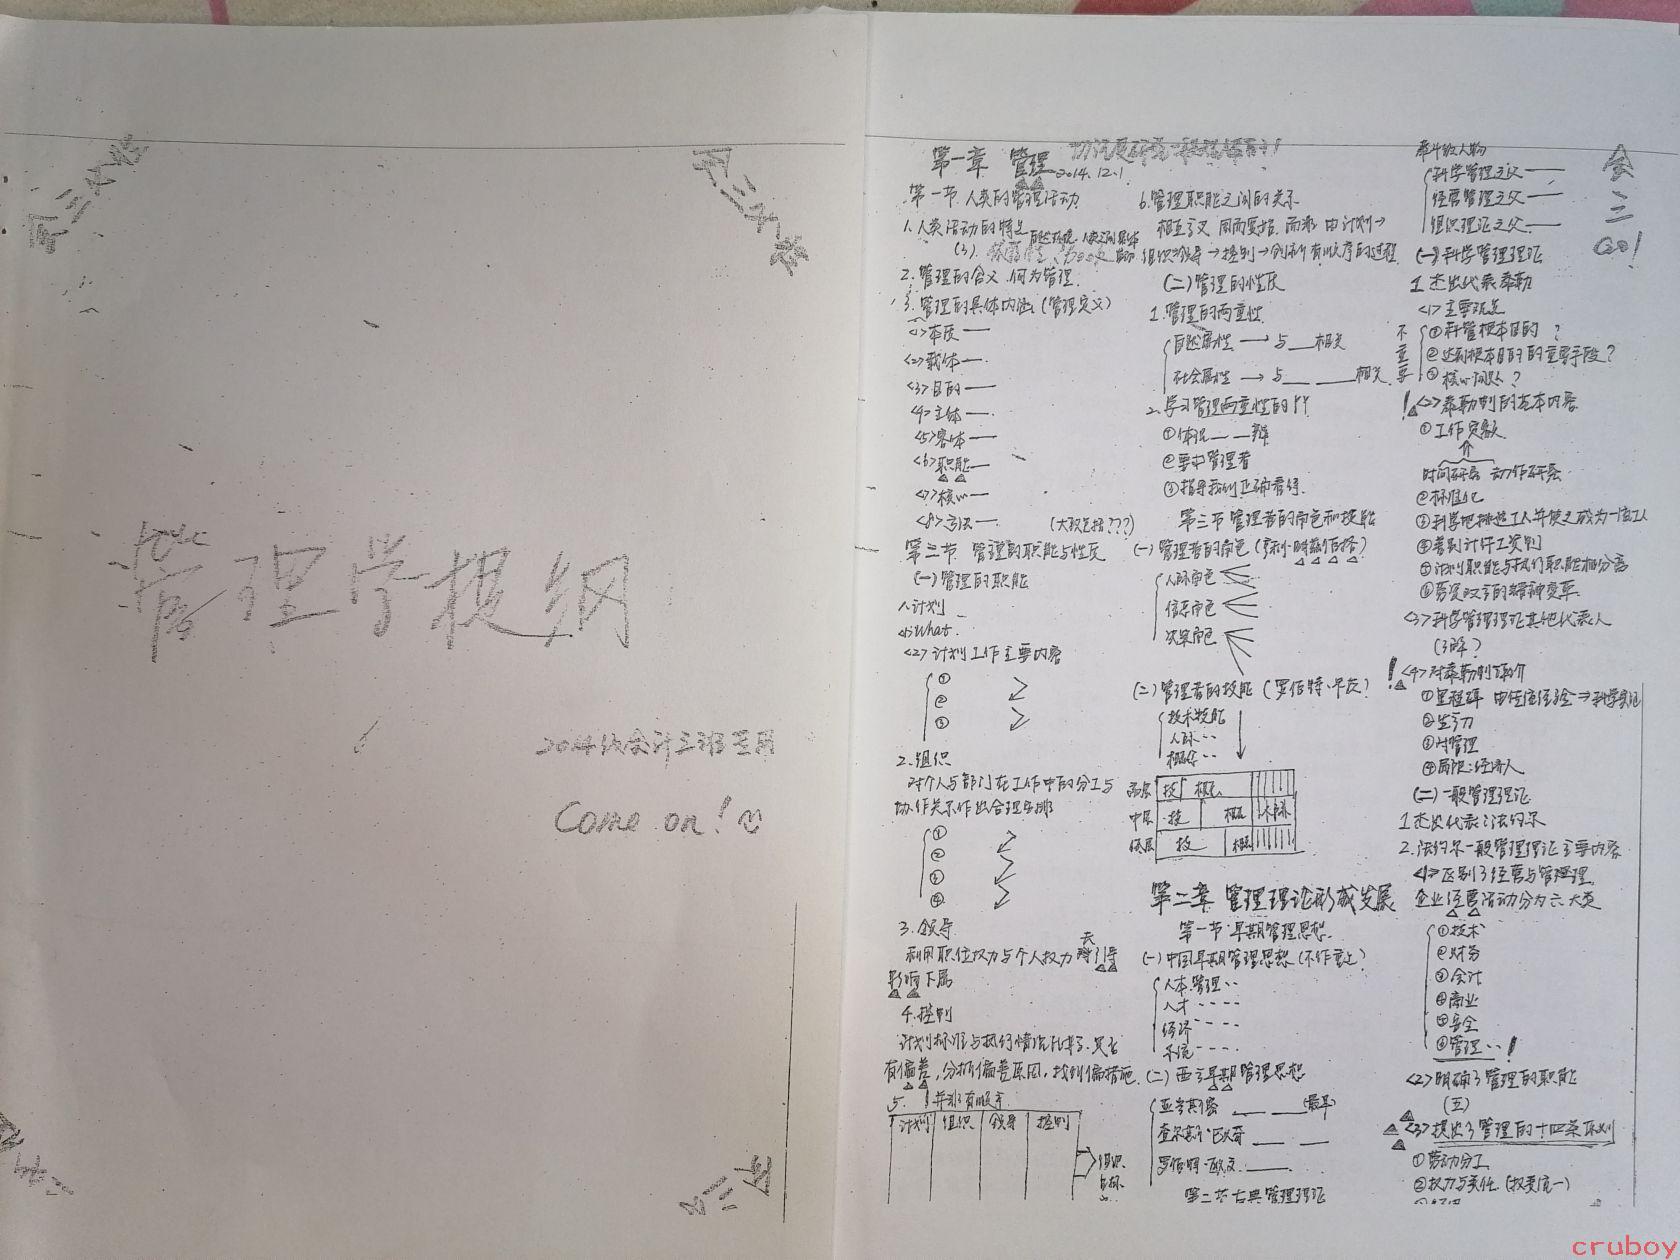 管理学提纲
2014级会计三班专用
Come on!
第一章 管理
2014.12.1
第一节 人类的管理活动
1.人类活动的特点
(3).
2.管理的含义 何为管理
3.管理的具体内涵(管理定义)
<1>本质——
<2>载体—
<3>目的——
<4>主体——
<5>客体——
<6>职能—
<7>核心—
<8>方法—
(大致包括???)
第二节 管理的职能与性质
(一)管理的职能
1.计划
<1>What.
<2>计划工作主要内容
①
②
③
2.组织
对个人与部门在工作中的分工与
协作关系作出合理安排
①
②
③
④
3.领导
利用职位权力与个人权力去 引导
影响下属
4.控制
计划标准与执行情况 是否
有偏差,分析偏差原因,找纠偏措施.
5.
计划 组织 领导 控制
组织
目标
6.管理职能之间的关系
相互 由计划→
组织→领导→控制→创新有顺序的过程
(二)管理的性质
1.管理的两重性
自然属性 → 与__相关
社会属性 → 与__ __相关
2.学习管理两重性的
①体现__ __辩
②要求管理者
③指导我们正确看待.
第三节 管理者的角色和技能
(一)管理者的角色(亨利·明茨伯格?)
人际角色
信息角色
决策角色
(二)管理者的技能(罗伯特·卡茨?)
技术技能
人际··
概念··
高层 技 概念
中层 技 概念 人际
低层 技 概念
第二章 管理理论形成发展
第一节 早期管理思想.
(一)中国早期管理思想(不作重点)
人本管理··
人才----
经济----
系统----
(二)西方早期管理思想
亚当斯密 __ __(最早)
查尔斯·巴贝奇 __ __
罗伯特·欧文.____
第二节 古典管理理论
奉斗级人物
科学管理之父——
经营管理之父—
组织理论之父—
(一)科学管理理论
1.杰出代表泰勒
<1>主要观点
不重要
①科管根本目的?
②达到根本目的的重要手段?
③核心问题?
!<2>泰勒制的基本内容
①工作定额
时间研究 动作研究
②标准化
③科学地挑选工人并使之成为一流工人
④差别计件工资制
⑤计划职能与执行职能相分离
⑥劳资双方的精神变革.
<3>科学管理理论其他代表人
(了解?)
!<4>对泰勒制评价
①里程碑 由传统经验⇒科学实证
②生产力
③对管理
④局限:经济人
(二)一般管理理论
1.杰出代表:法约尔
2.法约尔一般管理理论主要内容
<1>区别了经营与管理
企业经营活动分为六大类
①技术
②财务
③会计
④商业
⑤安全
⑥管理··!
<2>明确了管理的职能
(五)
<3>提出了管理的十四条原则
①劳动分工
②权力与责任.(权责统一)
会
三
Go!
cruboy